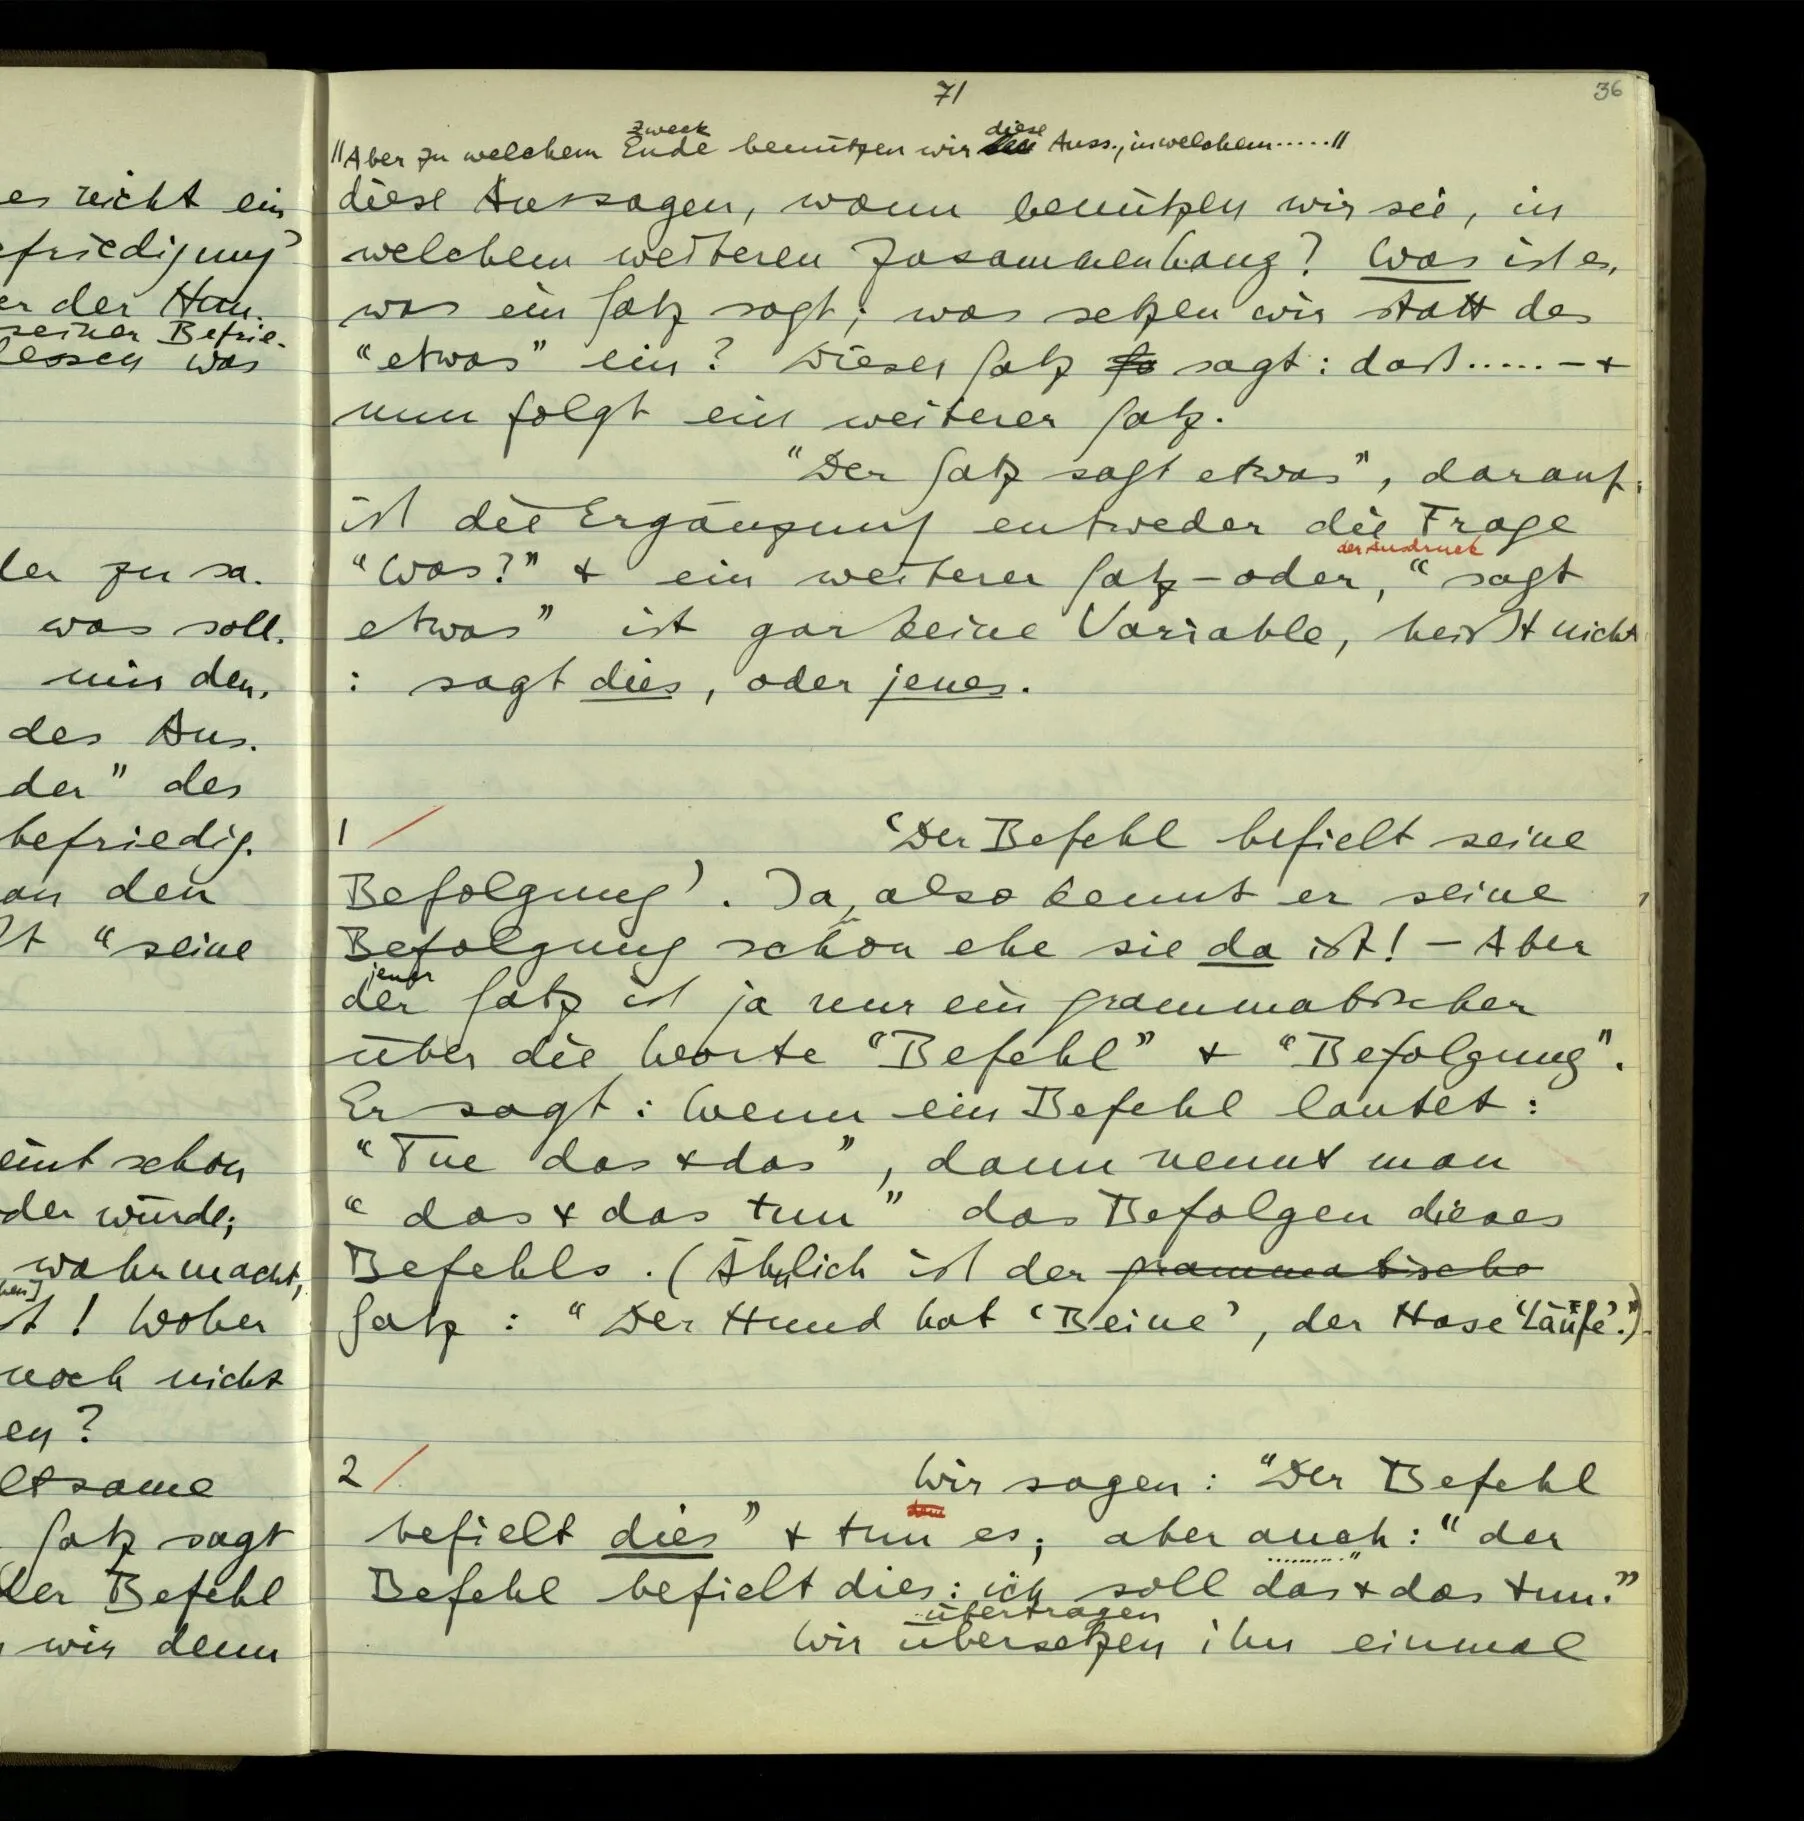 es nicht ein
efriedigung’
er der Han.
seiner Befrie-
dessen was
der zu sa.
was soll.
mir den.
des Aus.
der” des
befriedig.
an den
“seine
eint schon
der würde;
wahrmacht,
hen]
st! Woher
noch nicht
en?
ltsame
Satz sagt
der Befehl
wir denn
71
36
Zweck diese
//Aber zu welchem Ende benützen wir Auss., in welchem.....//
diese Aussagen, wann benützen wir sie, in
welchem weiteren Zusammenhang? Was ist es,
was ein Satz sagt; was setzen wir statt des
“etwas” ein? Dieser Satz so sagt: daß..... – +
nun folgt ein weiterer Satz.
“Der Satz sagt etwas”, darauf
ist die Ergänzung entweder die Frage
der Ausdruck
“Was?” + ein weiterer Satz – oder, “sagt
etwas” ist gar keine Variable, heißt nicht
: sagt dies, oder jenes.
1 /
‘Der Befehl befielt seine
Befolgung’. Ja, also kennt er seine
Befolgung schon ehe sie da ist! – Aber
jener
der Satz ist ja nur ein grammatischer
über die Worte “Befehl” + “Befolgung”.
Er sagt: Wenn ein Befehl lautet:
“Tue das + das”, dann nennt man
“das + das tun” das Befolgen dieses
Befehls. (Ähnlich ist der grammatische
Satz: “Der Hund hat ‘Beine’, der Hase ‘Läufe’.”)
2 /
Wir sagen: “Der Befehl
befielt dies” + tun es; aber auch: “der
........”
Befehl befielt dies: ich soll das + das tun.”
übertragen
Wir übersetzen ihn einmal